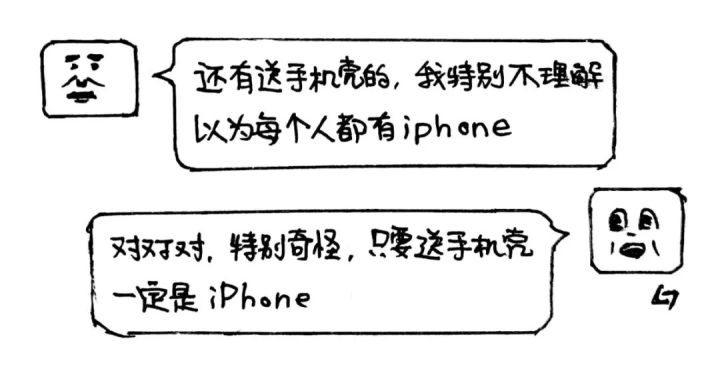 还有送手机壳的，我特别不理解
以为每个人都有iphone
对对对，特别奇怪，只要送手机壳
一定是iPhone